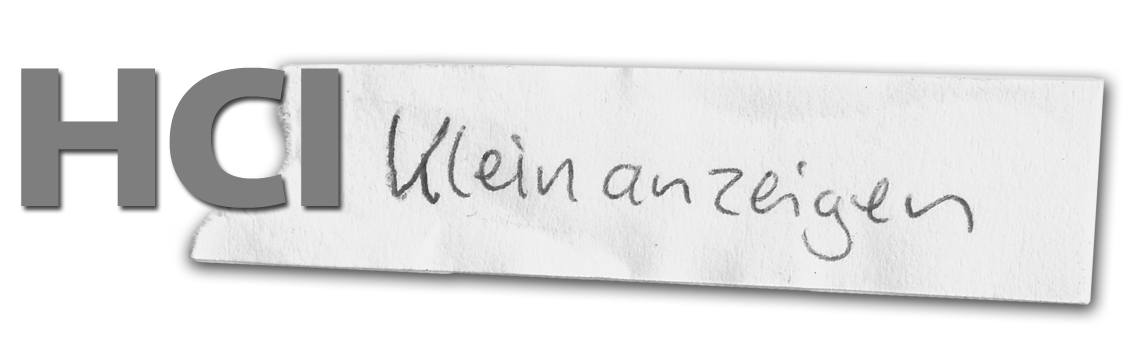 HCI Kleinanzeigen